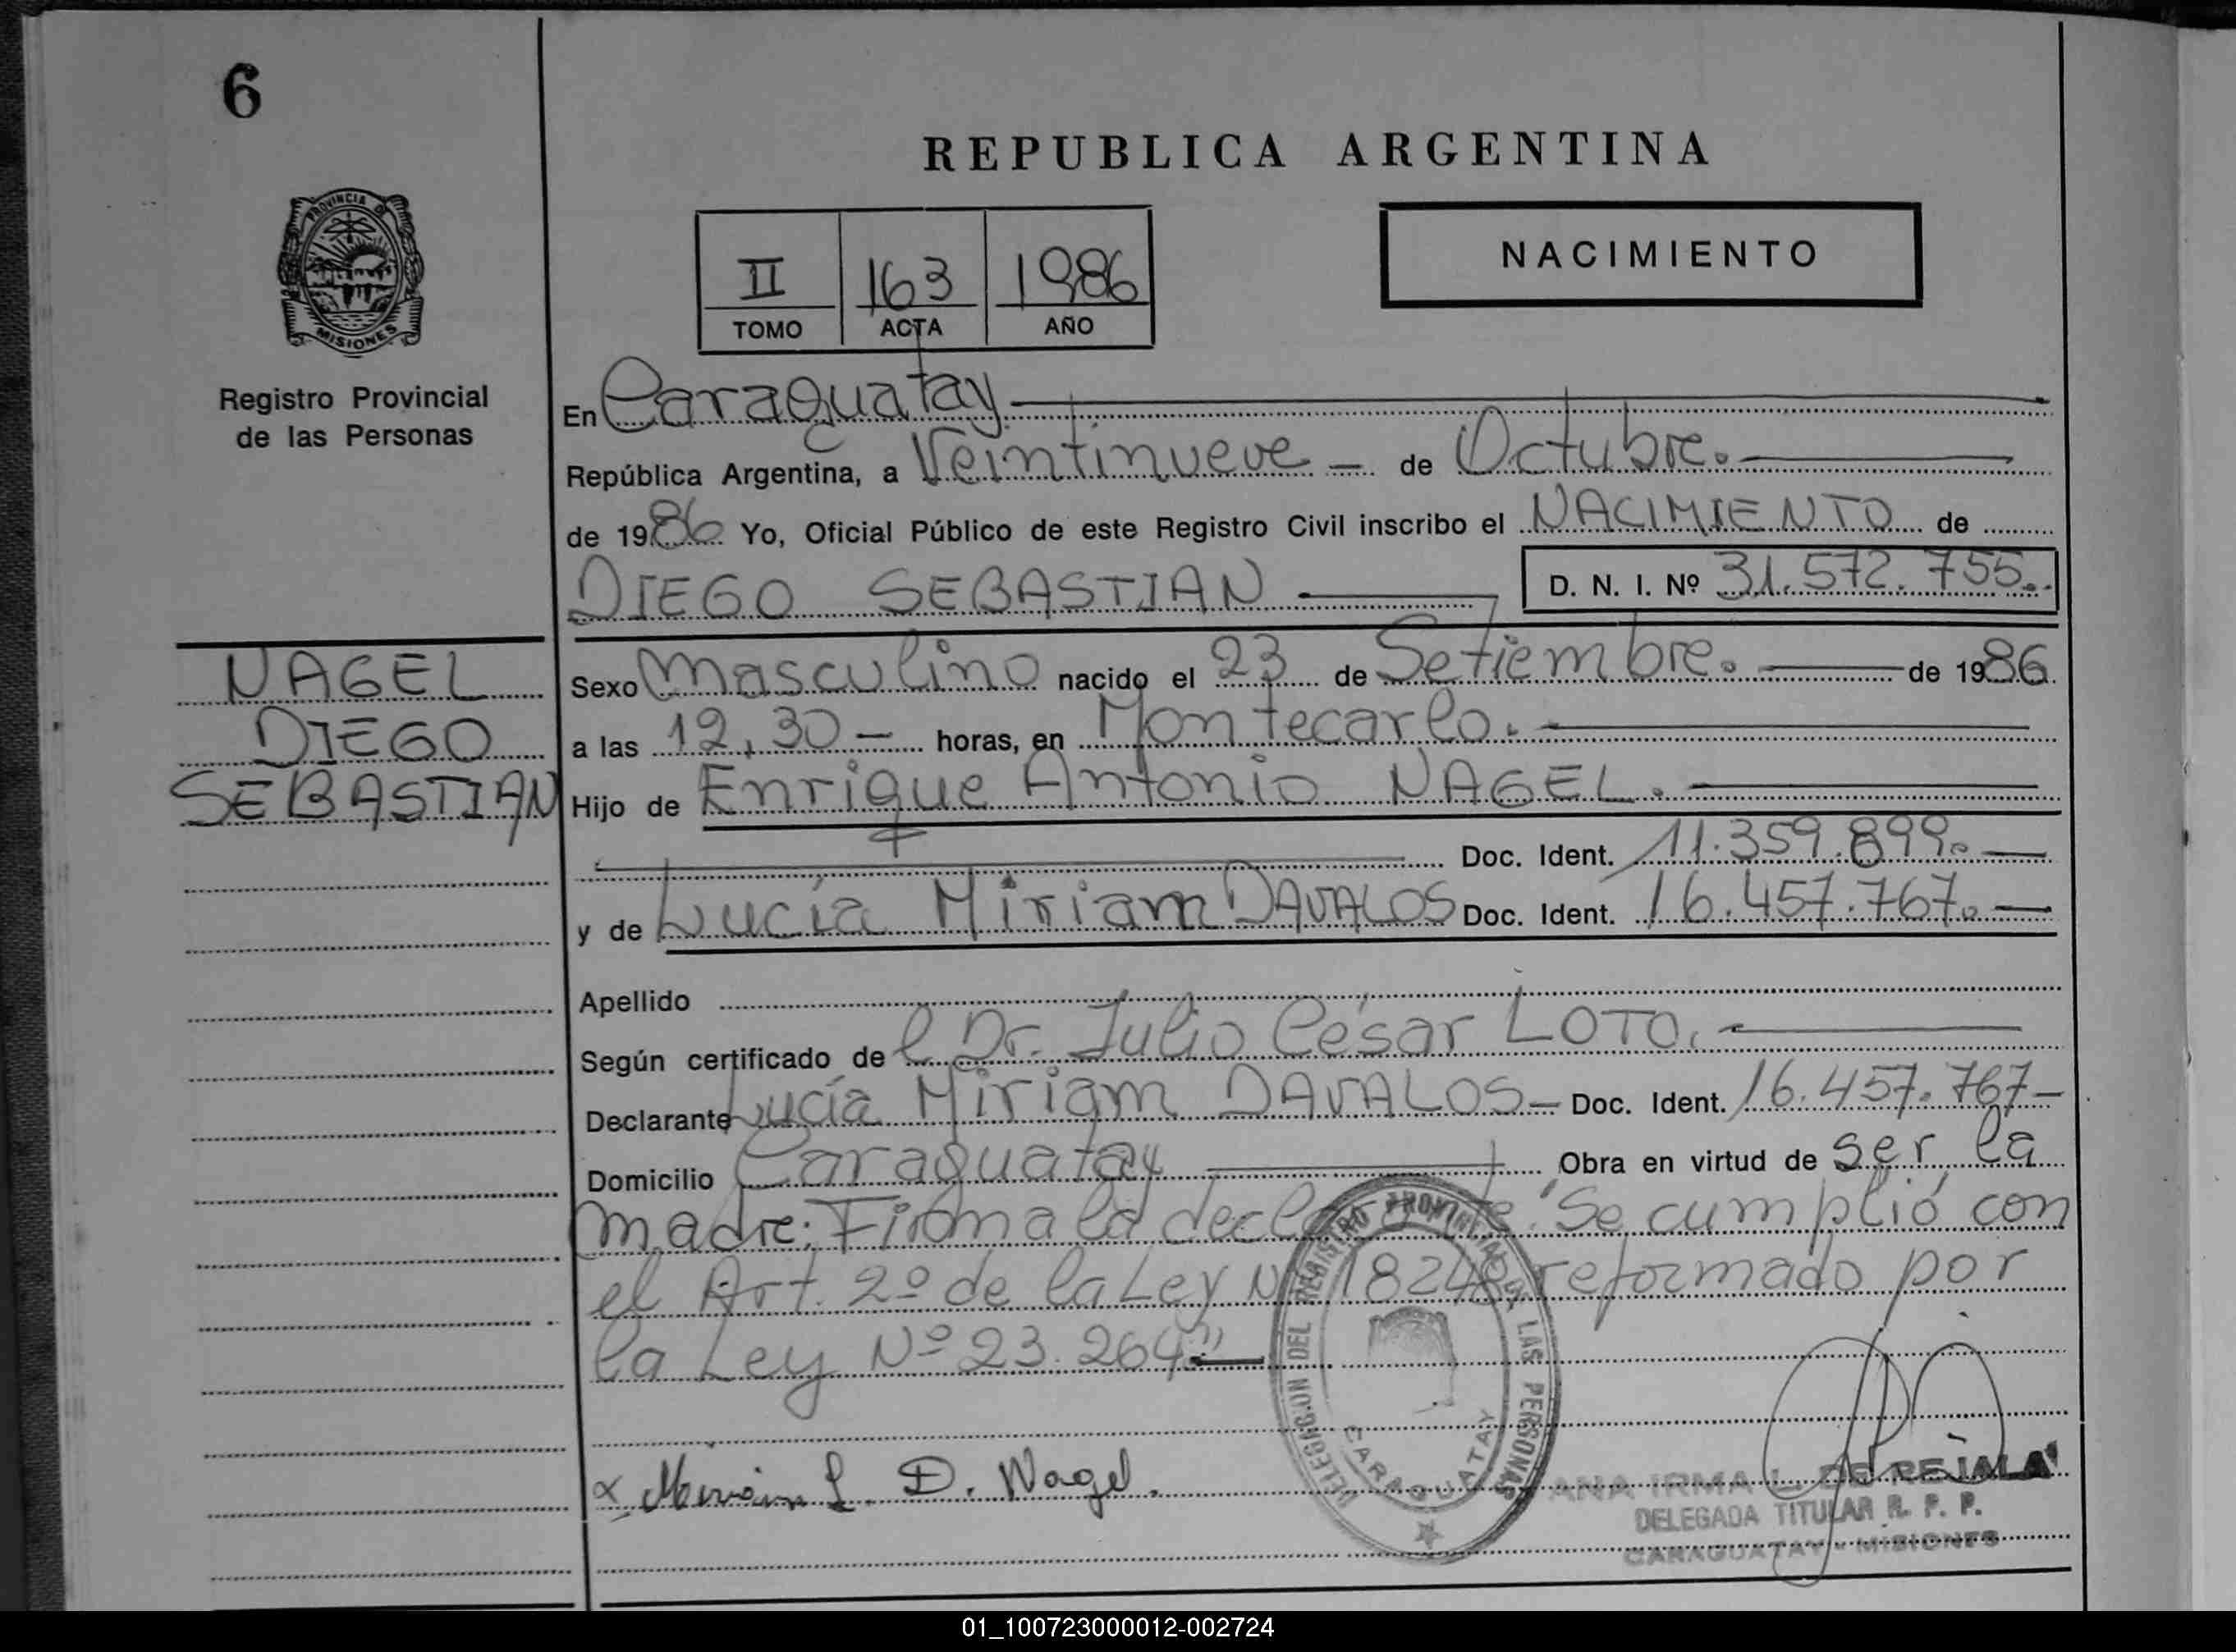 6
REPUBLICA ARGENTINA
PROVINCIA DE
MISIONES
Registro Provincial
de las Personas
II 163 1986
TOMO ACTA AÑO
NACIMIENTO
En Caraguatay
República Argentina, a Veintinueve - de Octubre.
de 1986 Yo, Oficial Público de este Registro Civil inscribo el NACIMIENTO de
DIEGO SEBASTIAN D. N. I. Nº 31.572.755.
NAGEL
DIEGO
SEBASTIAN
Sexo Masculino nacido el 23 de Setiembre. de 1986
a las 12,30 - horas, en Montecarlo.
Hijo de Enrique Antonio NAGEL.
Doc. Ident. 11.359.899.
y de Lucía Miriam DAVALOS Doc. Ident. 16.457.767.
Apellido
Según certificado de l Dr. Julio César LOTO.
Declarante Lucía Miriam DAVALOS - Doc. Ident. 16.457.767-
Domicilio Caraguatay Obra en virtud de ser la
madre: Firma la declarante. "Se cumplió con
el Art. 2º de la Ley Nº 18248 reformado por
la Ley Nº 23.264"
x Miriam L. D. Nagel.
DELEGACION DEL REGISTRO PROVINCIAL DE LAS PERSONAS
CARAGUATAY
ANA IRMA L. DE REJALA
DELEGADA TITULAR R. P. P.
CARAGUATAY - MISIONES
01_100723000012-002724